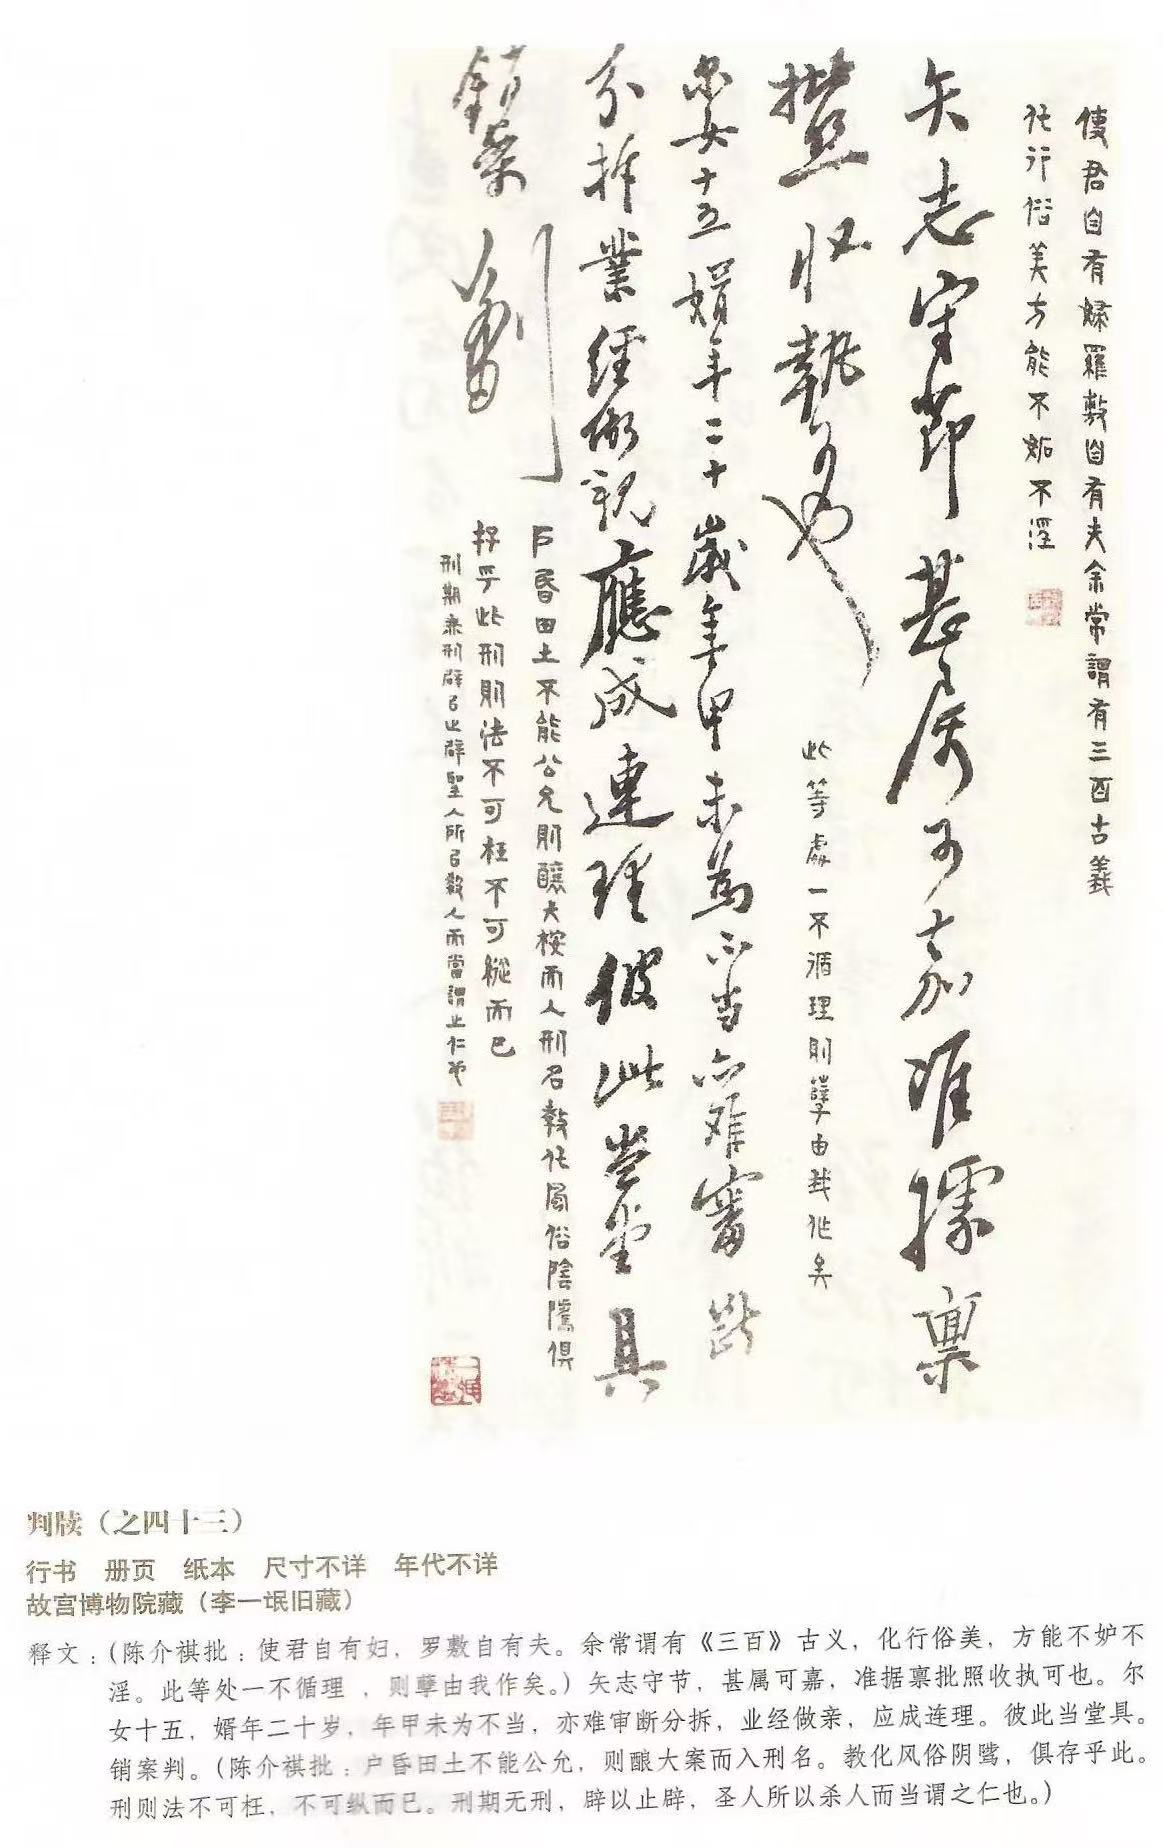 使君自有婦羅敷自有夫余常謂有三百古義
化行俗美方能不妬不淫
矢志守節甚属可嘉准據稟
批照收執可也
此等處一不循理則孽由我作矣
尔女十五婿年二十歲年甲未為不当亦难審斷
分拆業經做親應成連理彼此當堂具
銷案判
戶昏田土不能公允則釀大案而入刑名教化風俗陰隲俱
存乎此刑則法不可枉不可縱而已
刑期無刑辟以止辟聖人所以殺人而當謂之仁也
判牍（之四十三）
行书 册页 纸本 尺寸不详 年代不详
故宫博物院藏（李一氓旧藏）
释文：（陈介祺批：使君自有妇，罗敷自有夫。余常谓有《三百》古义，化行俗美，方能不妒不
淫。此等处一不循理，则孽由我作矣。）矢志守节，甚属可嘉，准据禀批照收执可也。尔
女十五，婿年二十岁，年甲未为不当，亦难审断分拆，业经做亲，应成连理。彼此当堂具。
销案判。（陈介祺批：户昏田土不能公允，则酿大案而入刑名。教化风俗阴骘，俱存乎此。
刑则法不可枉，不可纵而已。刑期无刑，辟以止辟，圣人所以杀人而当谓之仁也。）